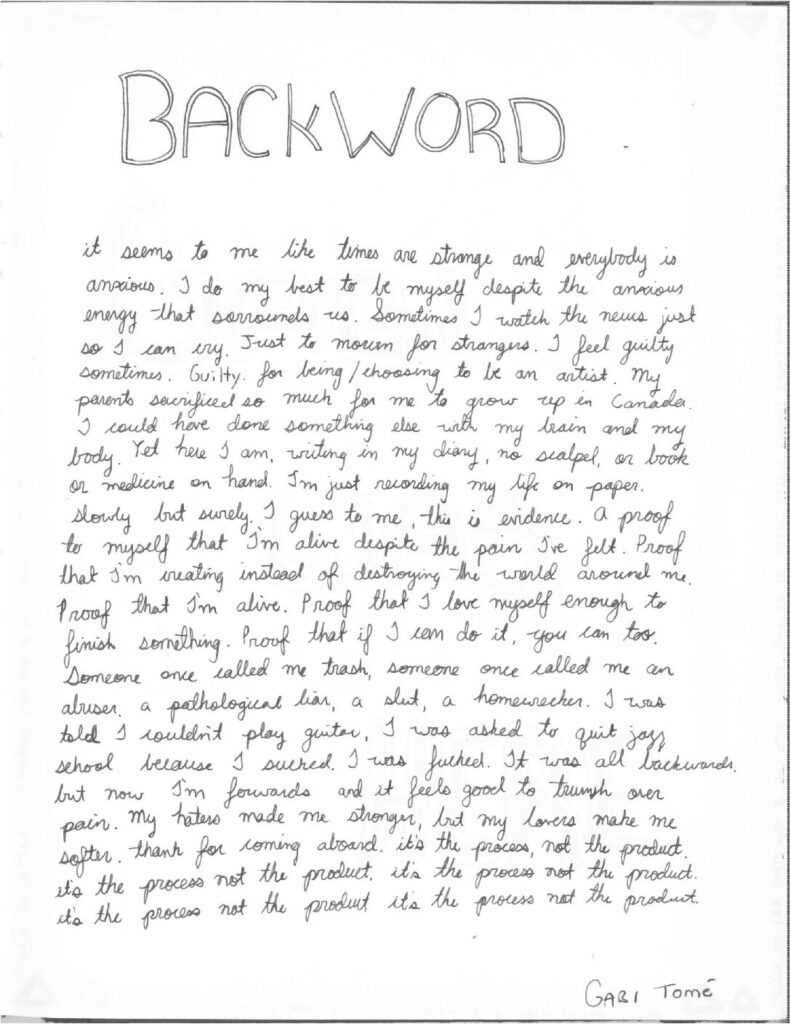 BACKWORD
it seems to me like times are strange and everybody is
anxious. I do my best to be myself despite the anxious
energy that sorrounds us. Sometimes I watch the news just
so I can cry. Just to mourn for strangers. I feel guilty
sometimes. Guilty. for being/choosing to be an artist. My
parents sacrificed so much for me to grow up in Canada.
I could have done something else with my brain and my
body. Yet here I am, writing in my diary, no scalpel, or book
or medicine on hand. I'm just recording my life on paper.
slowly but surely. I guess to me, this is evidence. A proof
to myself that I'm alive despite the pain I've felt. Proof
that I'm creating instead of destroying the world around me.
Proof that I'm alive. Proof that I love myself enough to
finish something. Proof that if I can do it, you can too.
Someone once called me trash, someone once called me an
abuser, a pathological liar, a slut, a homewrecker. I was
told I couldn't play guitar, I was asked to quit jazz
school because I sucked. I was fucked. It was all backwards.
but now I'm forwards and it feels good to triumph over
pain. My haters made me stronger, but my lovers make me
softer. thank for coming aboard. it's the process, not the product.
it's the process not the product. it's the process not the product.
it's the process not the product it's the process not the product.
GABI TOMÉ